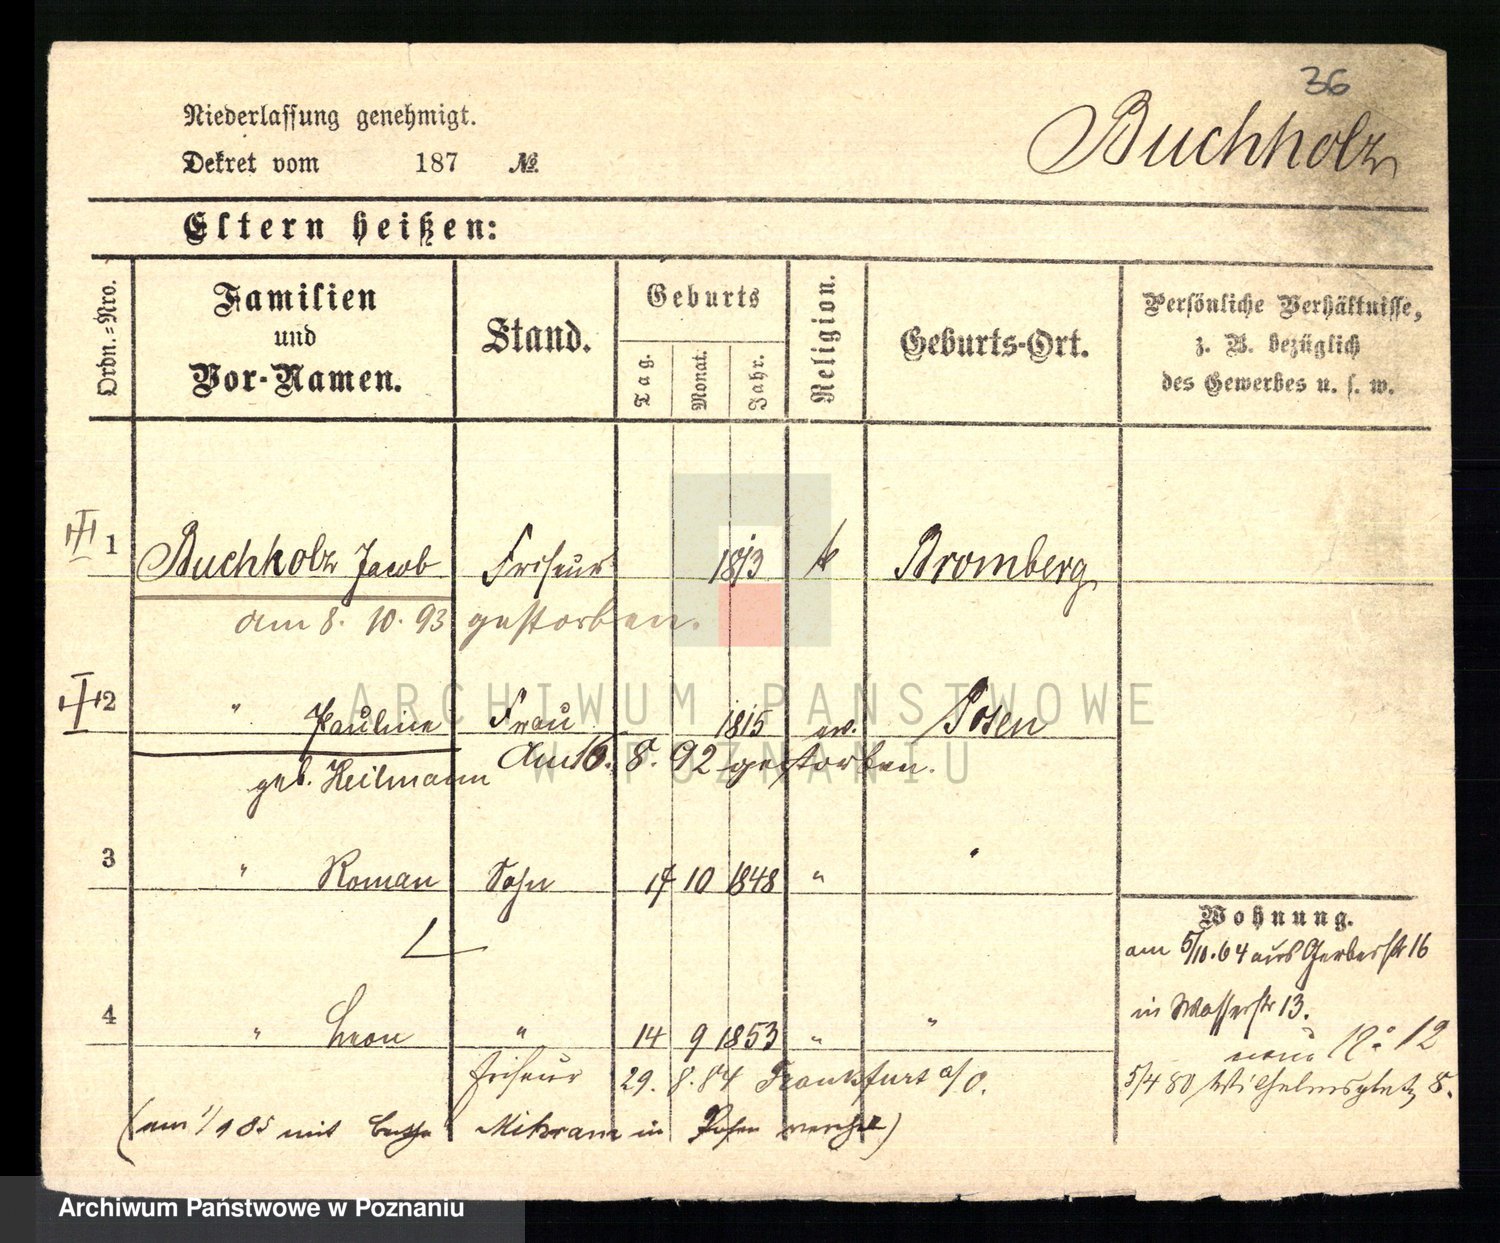 36
Niederlassung genehmigt.
Buchholz
Dekret vom 187 №.
Eltern heißen:
Ordn.=Nro.
Familien und Vor-Namen.
Stand.
Geburts
Tag.
Monat.
Jahr.
Religion.
Geburts-Ort.
Persönliche Verhältnisse,
z. B. bezüglich
des Gewerbes u. s. w.
1 Buchholz Jacob Friseur 1813 k Bromberg
am 8. 10. 93 gestorben.
2 " Pauline Frau 1815 ev. Posen
geb. Heilmann Am 16. 8. 92 gestorben.
3 " Roman Sohn 17 10 1848 " "
Wohnung.
am 5/10.64 aus Gerberstr 16
in Wasserstr 13.
4 " Leon " 14 9 1853 " "
nun No 12
Friseur 29. 8. 84 Frankfurt a/O.
5/4 80 Wilhelmsplatz 8.
(am 1/ 85 mit in Posen)
ARCHIWUM PAŃSTWOWE
W POZNANIU
Archiwum Państwowe w Poznaniu